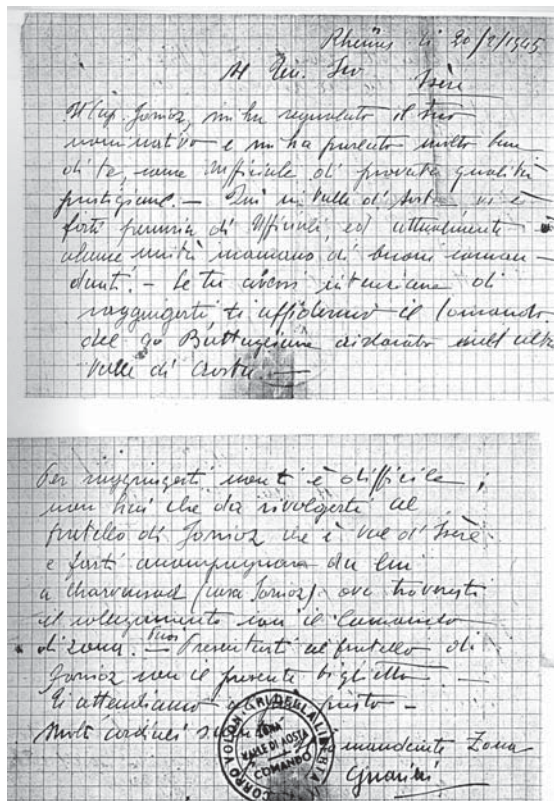 Rhêmes li 20/2/1945
Al Ten. Ivo Isère
Il Cap. Janioz, mi ha segnalato il tuo
nominativo e mi ha parlato molto bene
di te, come Ufficiale di provata qualità
partigiane. - Qui in Valle d'Aosta vi è
forti penuria di Ufficiali, ed attualmente
alcune unità mancano di buoni coman-
danti. - Se tu avessi intenzione di
raggiungerti, ti affideremo il Comando
del 9o Battaglione dislocato nell'alta
Valle di Aosta. -
Per raggiungerti non ti è difficile;
non hai che da rivolgerti al
fratello di Janioz che è Val d'Isère
e farti accompagnare da lui
a (casa Janioz) ove troveresti
il collegamento con il Comando
di zona. - Presentarti al fratello di
Janioz con il presente biglietto. -
Ti attendiamo presto -
Molti cordiali saluti
Comandante Zona
CORPO VOLON. DELLA LIBERTÀ
ZONA
VALLE DI AOSTA
COMANDO